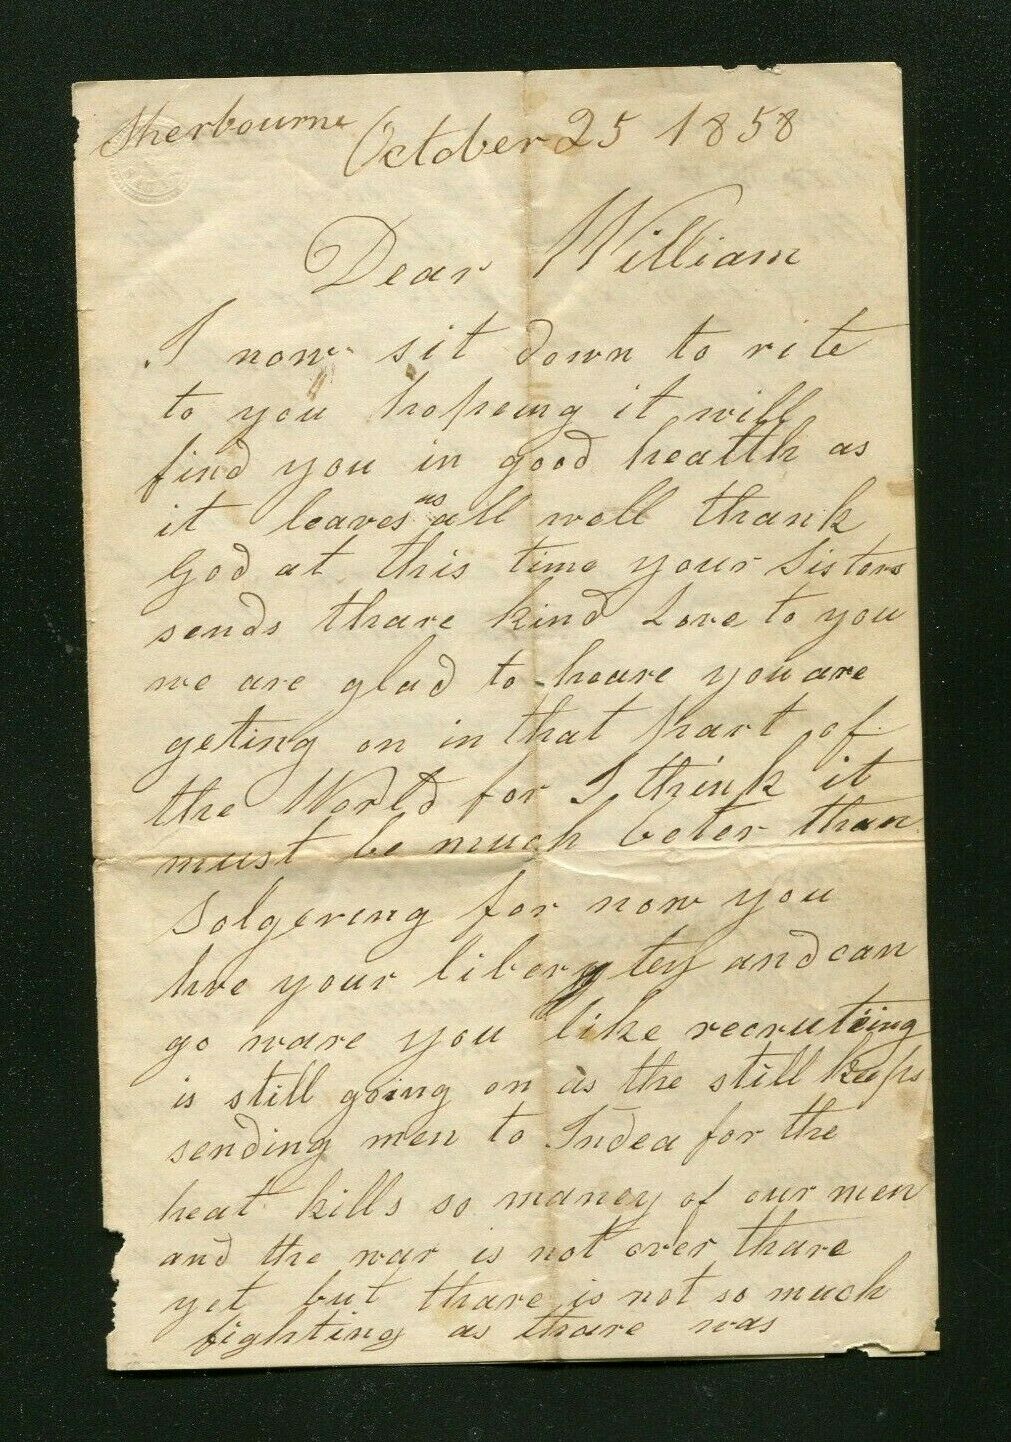 Sherbourne October 25 1858
Dear William
I now sit down to rite
to you hopeing it will
find you in good health as
it leaves us all well thank
God at this time your Sisters
sends thare kind Love to you
we are glad to heare you are
geting on in that part of
the World for I think it
must be much beter than
Solgering for now you
hve your liberytey and can
go ware you like recruteing
is still going on as the still keeps
sending men to Indea for the
heat kills so maney of our men
and the war is not over thare
yet but thare is not so much
fighting as thare was